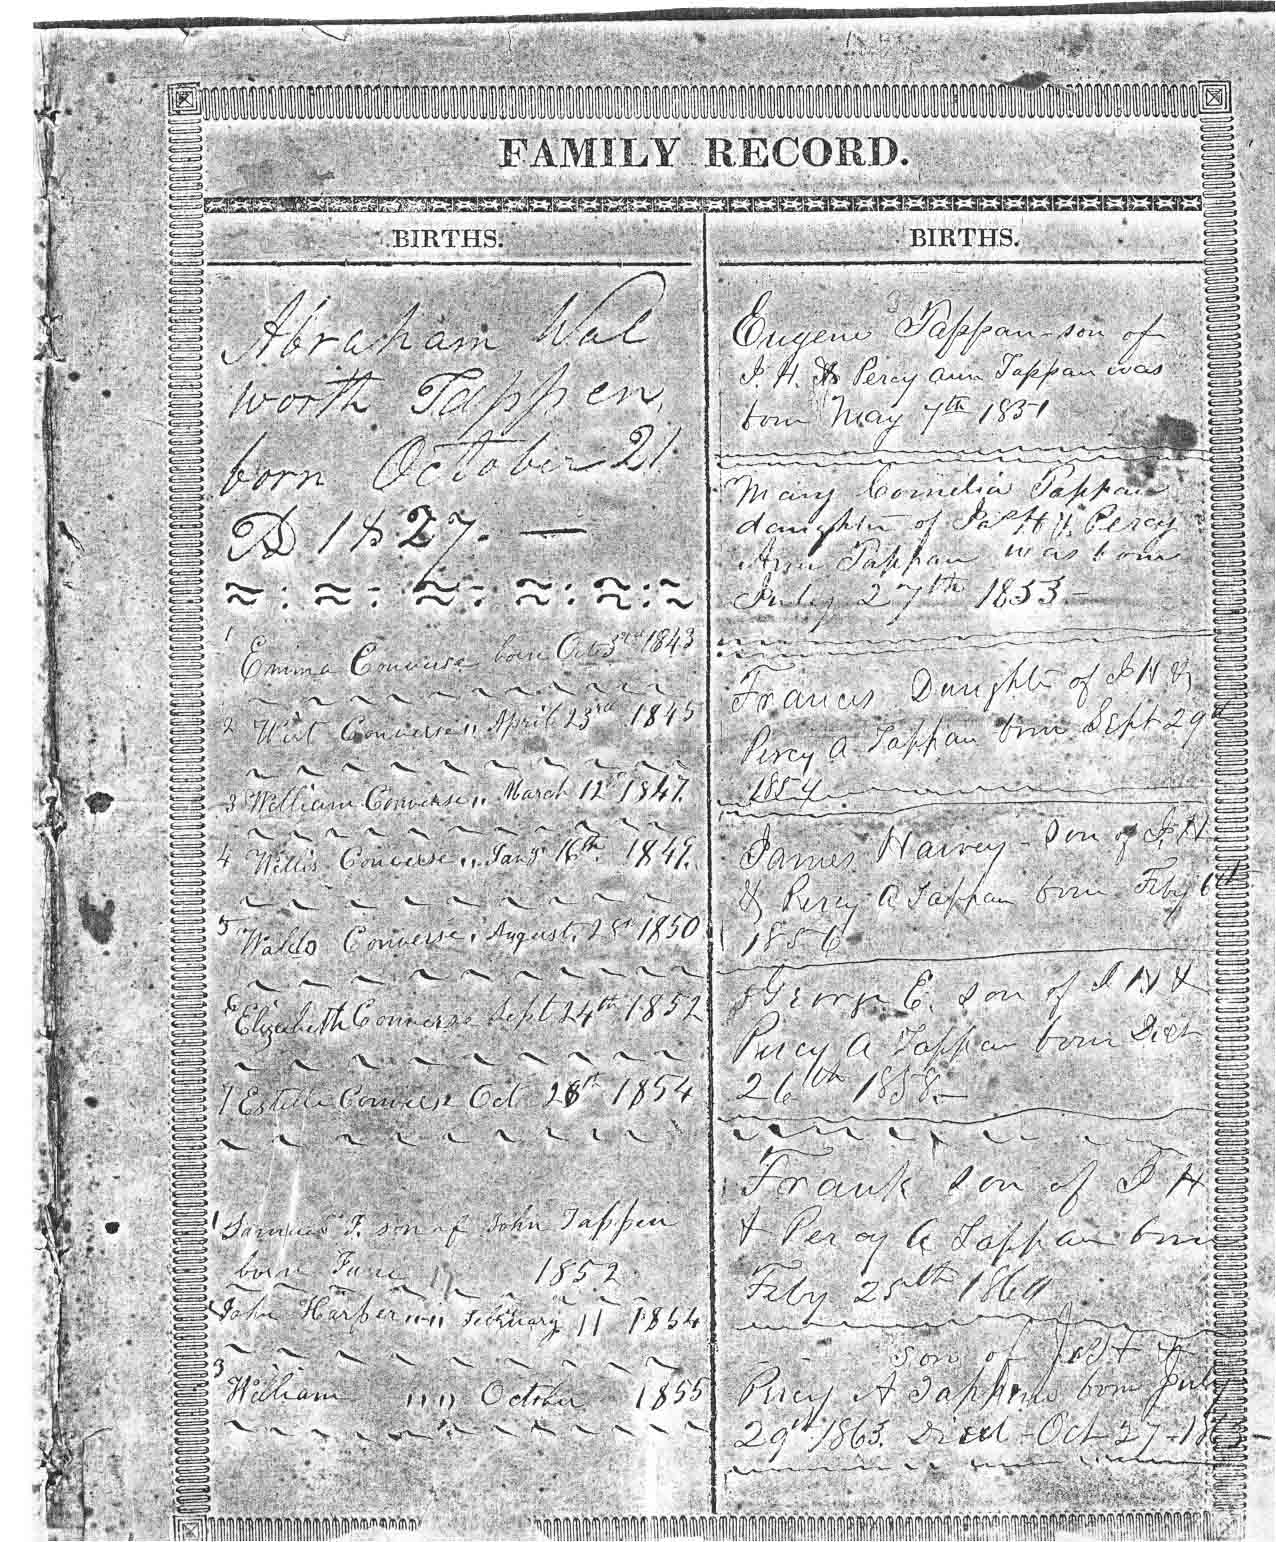 FAMILY RECORD.
BIRTHS.
Abraham Wal
worth Tappen,
born October 21
AD 1827. —
1 Emma Converse born Oct 1843
2 Wirt Converse ,, April 23rd 1845
3 William Converse ,, March 12th 1847.
4 Willis Converse ,, Jany 16th 1849.
5 Waldo Converse ,, August 1850
6 Elizabeth Converse Sept 24th 1852
7 Estelle Converse Oct 28th 1854
1 F. son of John Tappen
born June 1852
John Harper ,, ,, February 11 1854
3
William ,, ,, October 1855
BIRTHS.
Eugene Tappan son of
J. H. & Percy Ann Tappan was
born May 7th 1851
Mary Cornelia Tappan
daughter of Jas H & Percy
Ann Tappan was born
July 27th 1853 –
Francis Daughter of J H &
Percy A Tappan born Sept 29th
1854
James Harvey – son of J. H
& Percy A Tappan born Feby 6th
1856
George E. son of J H &
Percy A Tappan born
26th 1858 –
Frank son of J H
& Percy A Tappan born
Feby 25th
son of Jas H &
Percy A Tappan born July
29th 1863. Died – Oct 27 – 1863